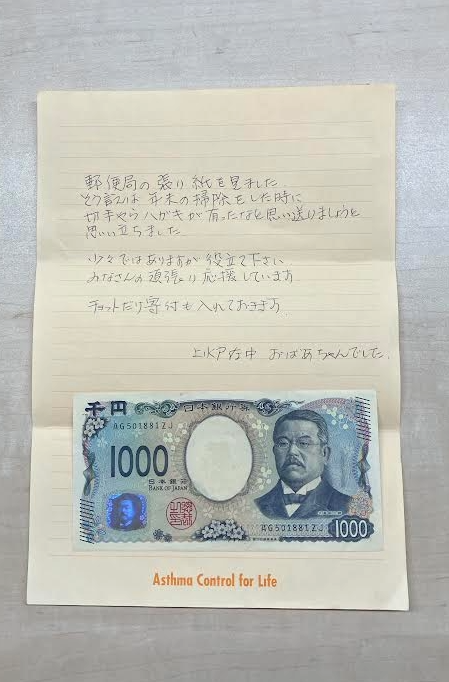 郵便局の張り紙を見ました.
そう言えば 年末の掃除をした時に
切手やらハガキが有ったなと思い送りましょうと
思い立ちました
少々ではありますが 役立て下さい
みなさんの頑張り応援しています
チョットだけ寄付も入れておきます
在中 おばあちゃんでした.
千円 日本銀行券
AG501881ZJ
1000
日本銀行
BANK OF JAPAN
AG501881ZJ
1000
Asthma Control for Life